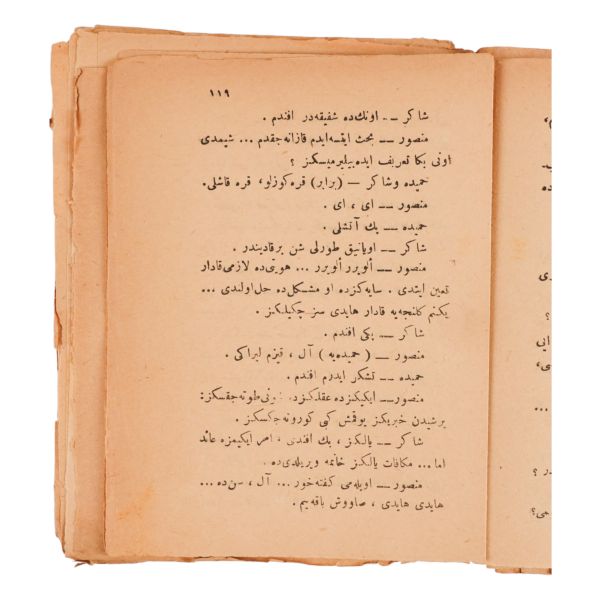 ١١٩
شاكر — اونك‌ده شفيقه‌در افندم .
منصور — بحث ايتسه‌ايدم قازانه‌جقدم ... شيمدى
اونى بكا تعريف ايده‌بيلير‌ميسكز ؟
حميده وشاكر — (برابر) قره‌كوزلو، قره قاشلى.
منصور — اى ، اى .
حميده — پك آتشلى .
شاكر — اويانيق طورلى شن برقاديندر .
منصور — ألويرر ألويرر ... هويتى‌ده لازمى‌قادار
تعين ايتدى . سايه‌كزده او مشكل‌ده حل‌اولندى ...
يكنم كلنجه‌يه قادار هايدى سز چكيلكز .
شاكر — پكى افندم .
منصور — ( حميده‌يه ) آل ، قيزم ليراكى .
حميده — تشكر ايدرم افندم .
منصور — ايكيكزده عقلكزده طوته‌جقسكز:
برشيدن خبريكز يوقمش كبى كورونه‌جكسكز .
شاكر — يالكز، بك افندى ، امر ايكيمزه عائد
اما... مكافات يالكز خانمه ويريلدى‌ده .
منصور — اويله‌مى كفته‌خور... آل ، سن‌ده ...
هايدى هايدى ، صاووش باقه‌يم .